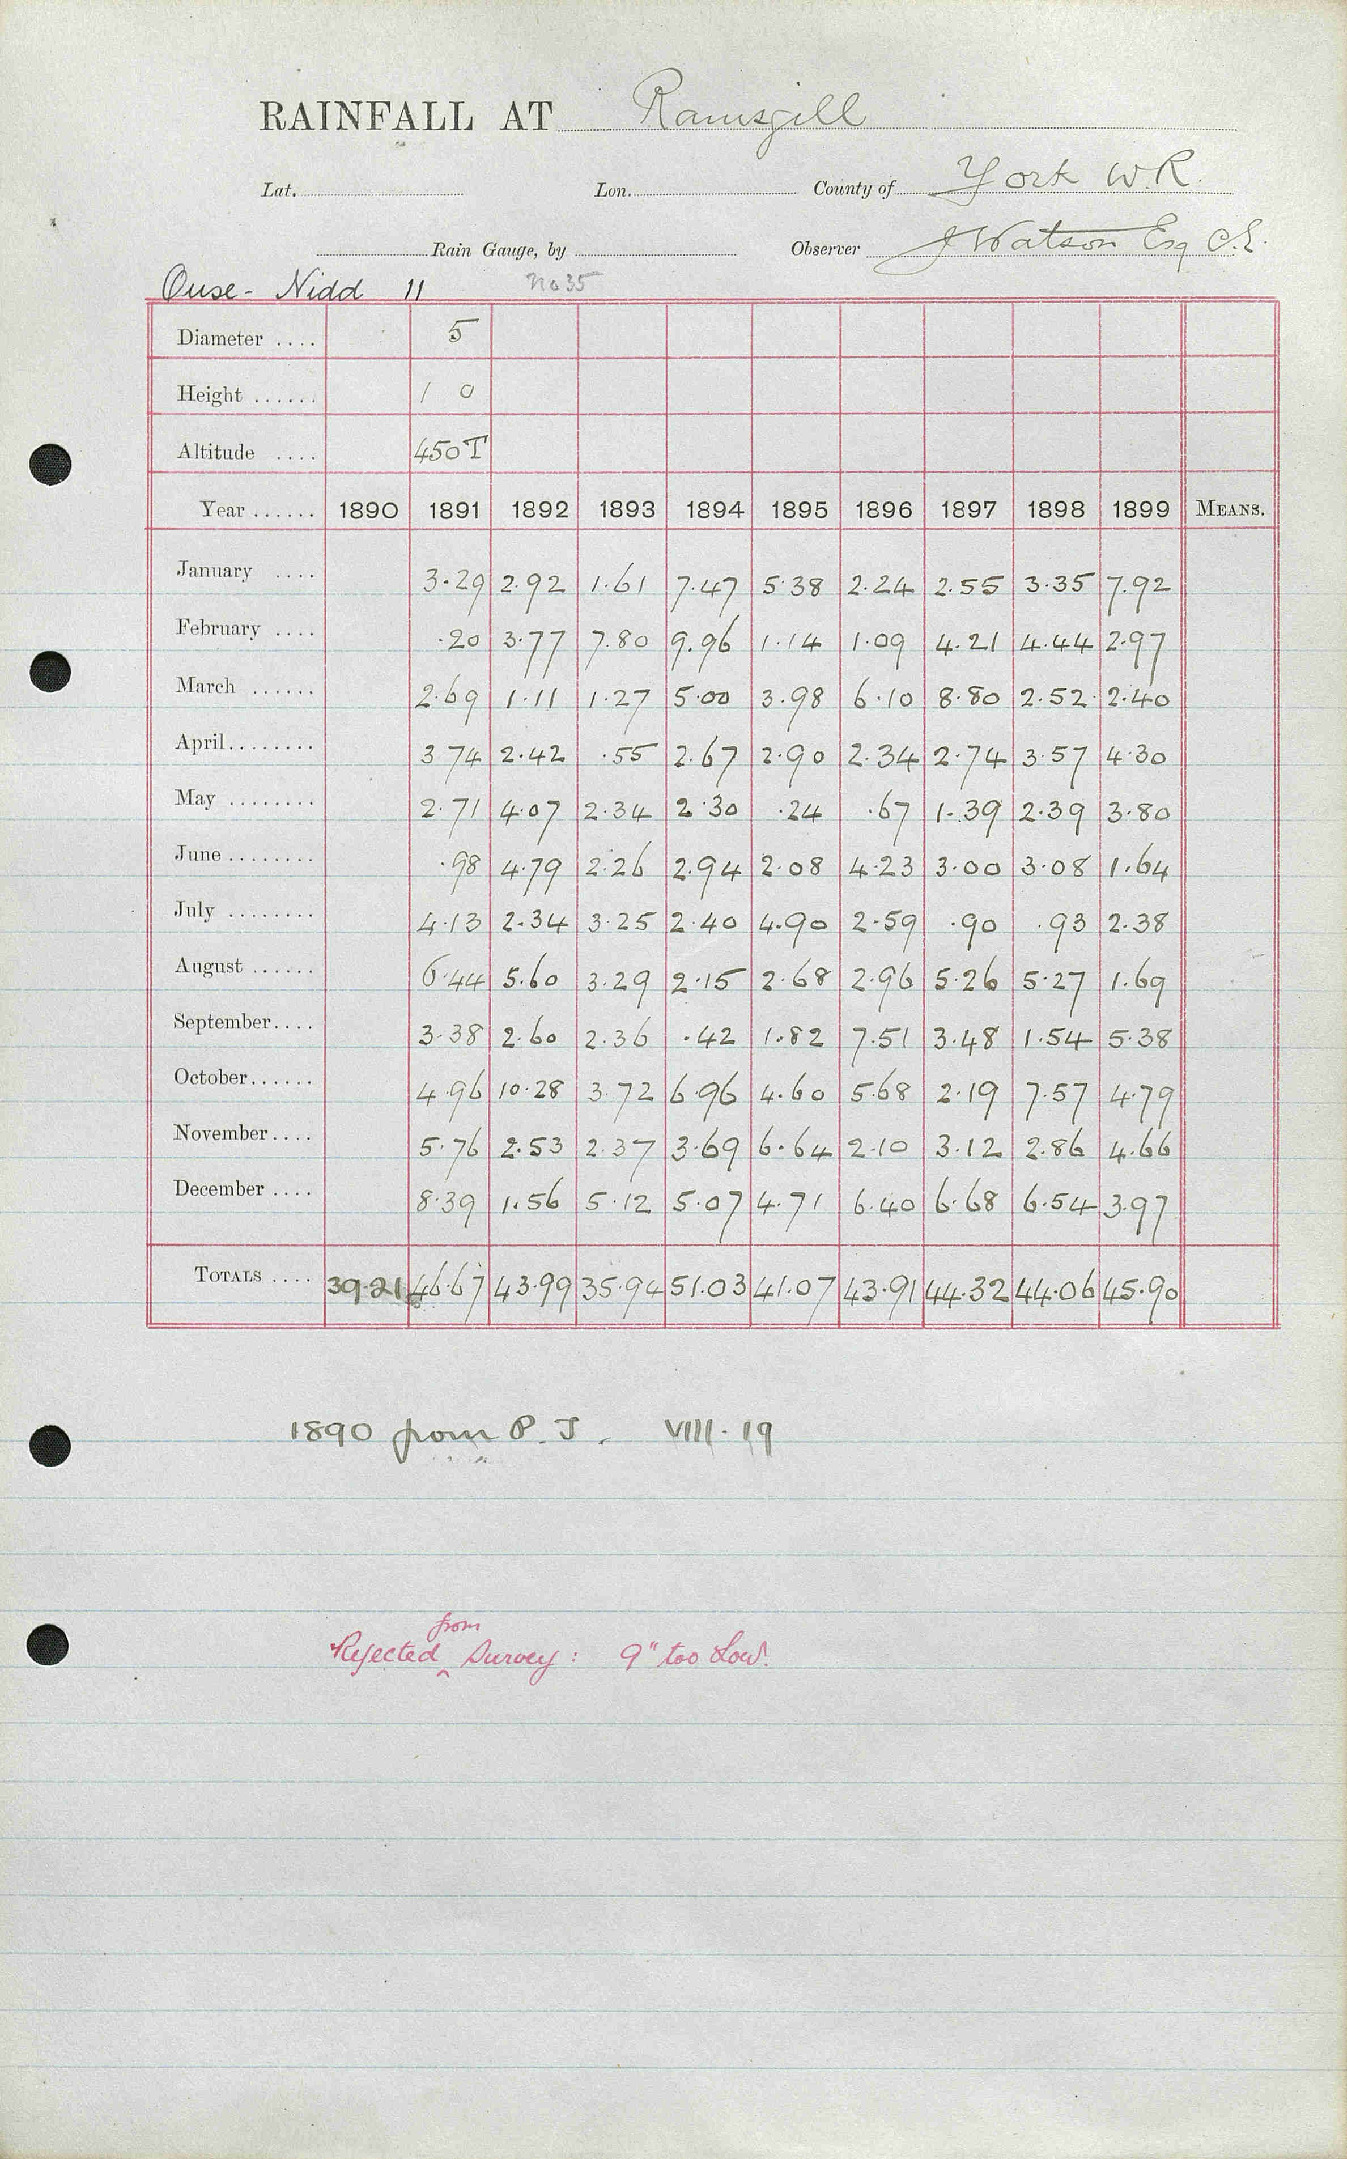 RAINFALL AT Ramsgill
Lat. Lon. County of York W.R.
Rain Gauge, by Observer J Watson Esq C.E.
Ouse - Nidd 11 No 35
Diameter .... 5
Height ...... 1 0
Altitude .... 450T
Year ...... 1890 1891 1892 1893 1894 1895 1896 1897 1898 1899 MEANS.
January .... 3.29 2.92 1.61 7.47 5.38 2.24 2.55 3.35 7.92
February .... .20 3.77 7.80 9.96 1.14 1.09 4.21 4.44 2.97
March ...... 2.69 1.11 1.27 5.00 3.98 6.10 8.80 2.52 2.40
April........ 3 74 2.42 .55 2.67 2.90 2.34 2.74 3.57 4.30
May ........ 2.71 4.07 2.34 2.30 .24 .67 1.39 2.39 3.80
June ........ .98 4.79 2.26 2.94 2.08 4.23 3.00 3.08 1.64
July ........ 4.13 2.34 3.25 2.40 4.90 2.59 .90 .93 2.38
August ...... 6.44 5.60 3.29 2.15 2.68 2.96 5.26 5.27 1.69
September.... 3.38 2.60 2.36 .42 1.82 7.51 3.48 1.54 5.38
October...... 4.96 10.28 3.72 6.96 4.60 5.68 2.19 7.57 4.79
November.... 5.76 2.53 2.37 3.69 6.64 2.10 3.12 2.86 4.66
December .... 8.39 1.56 5.12 5.07 4.71 6.40 6.68 6.54 3.97
TOTALS .... 39.21 46.67 43.99 35.94 51.03 41.07 43.91 44.32 44.06 45.90
1890 from P. J. VIII. 19
from
Rejected ‸ Survey : 9" too Low.